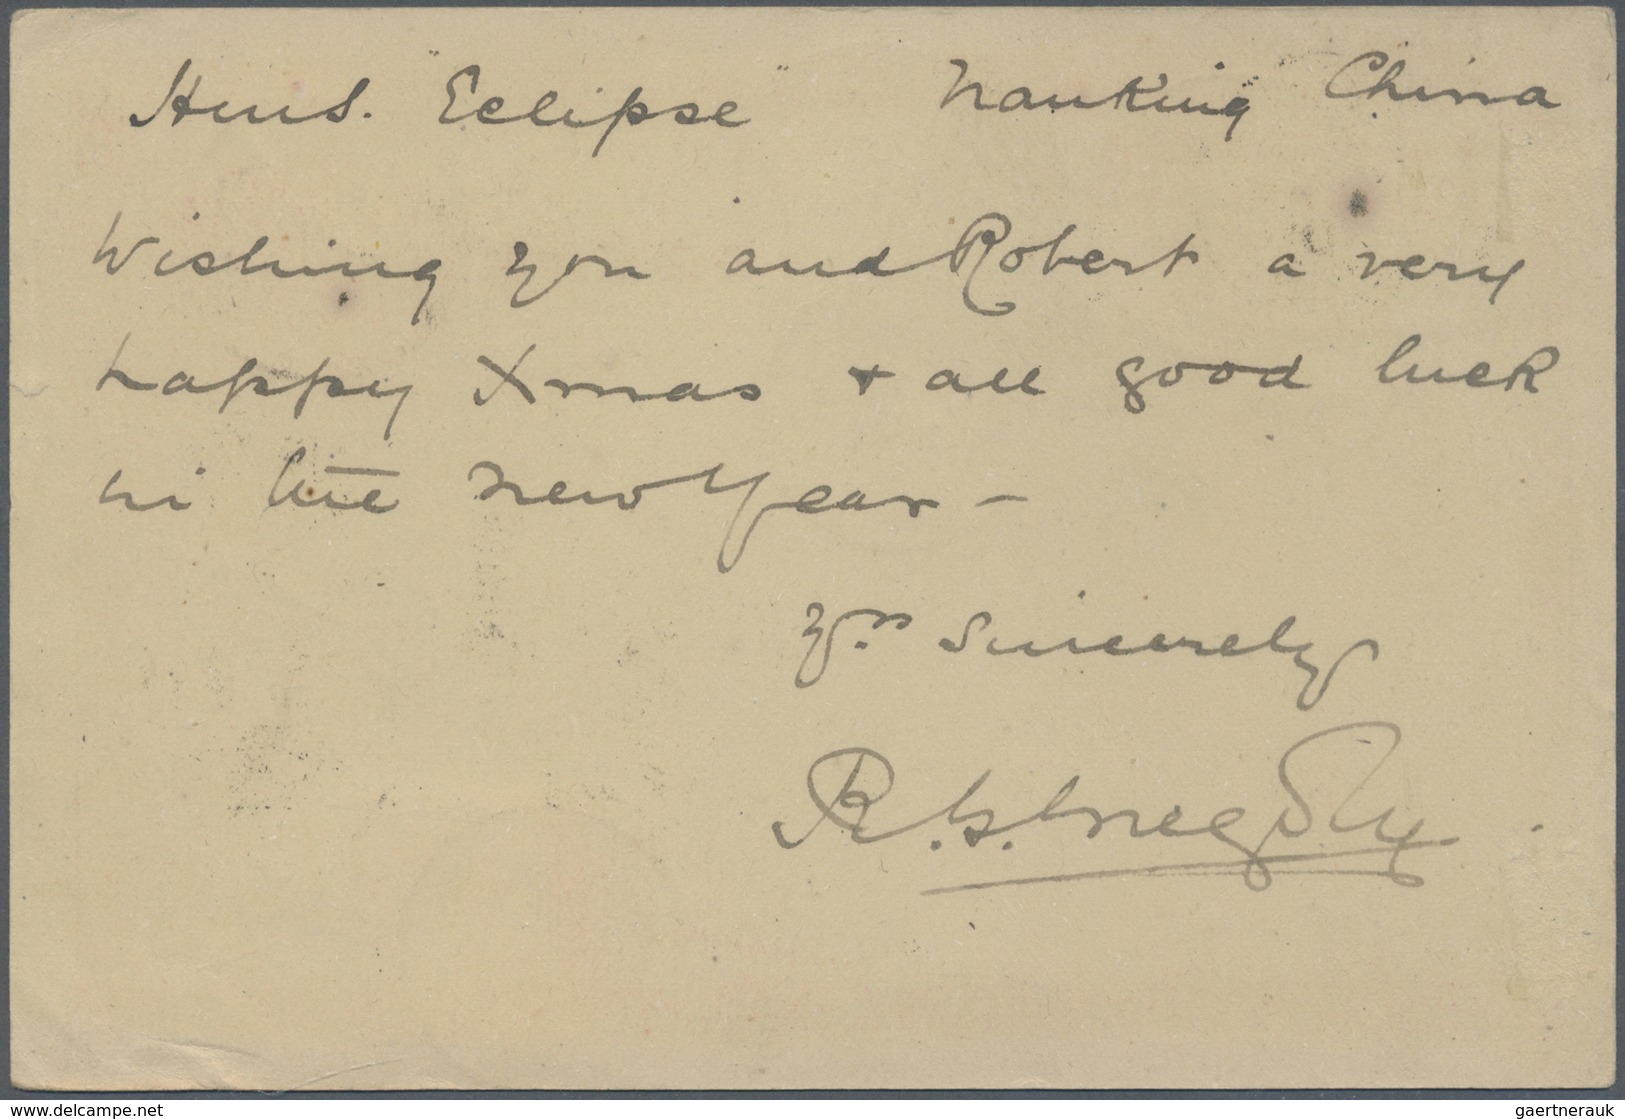 HMS. "Eclipse" Nanking China
Wishing you and Robert a very
happy Xmas + all good luck
in the New Year –
Yrs sincerely
R. G.
www.delcampe.net
gaertnerauk